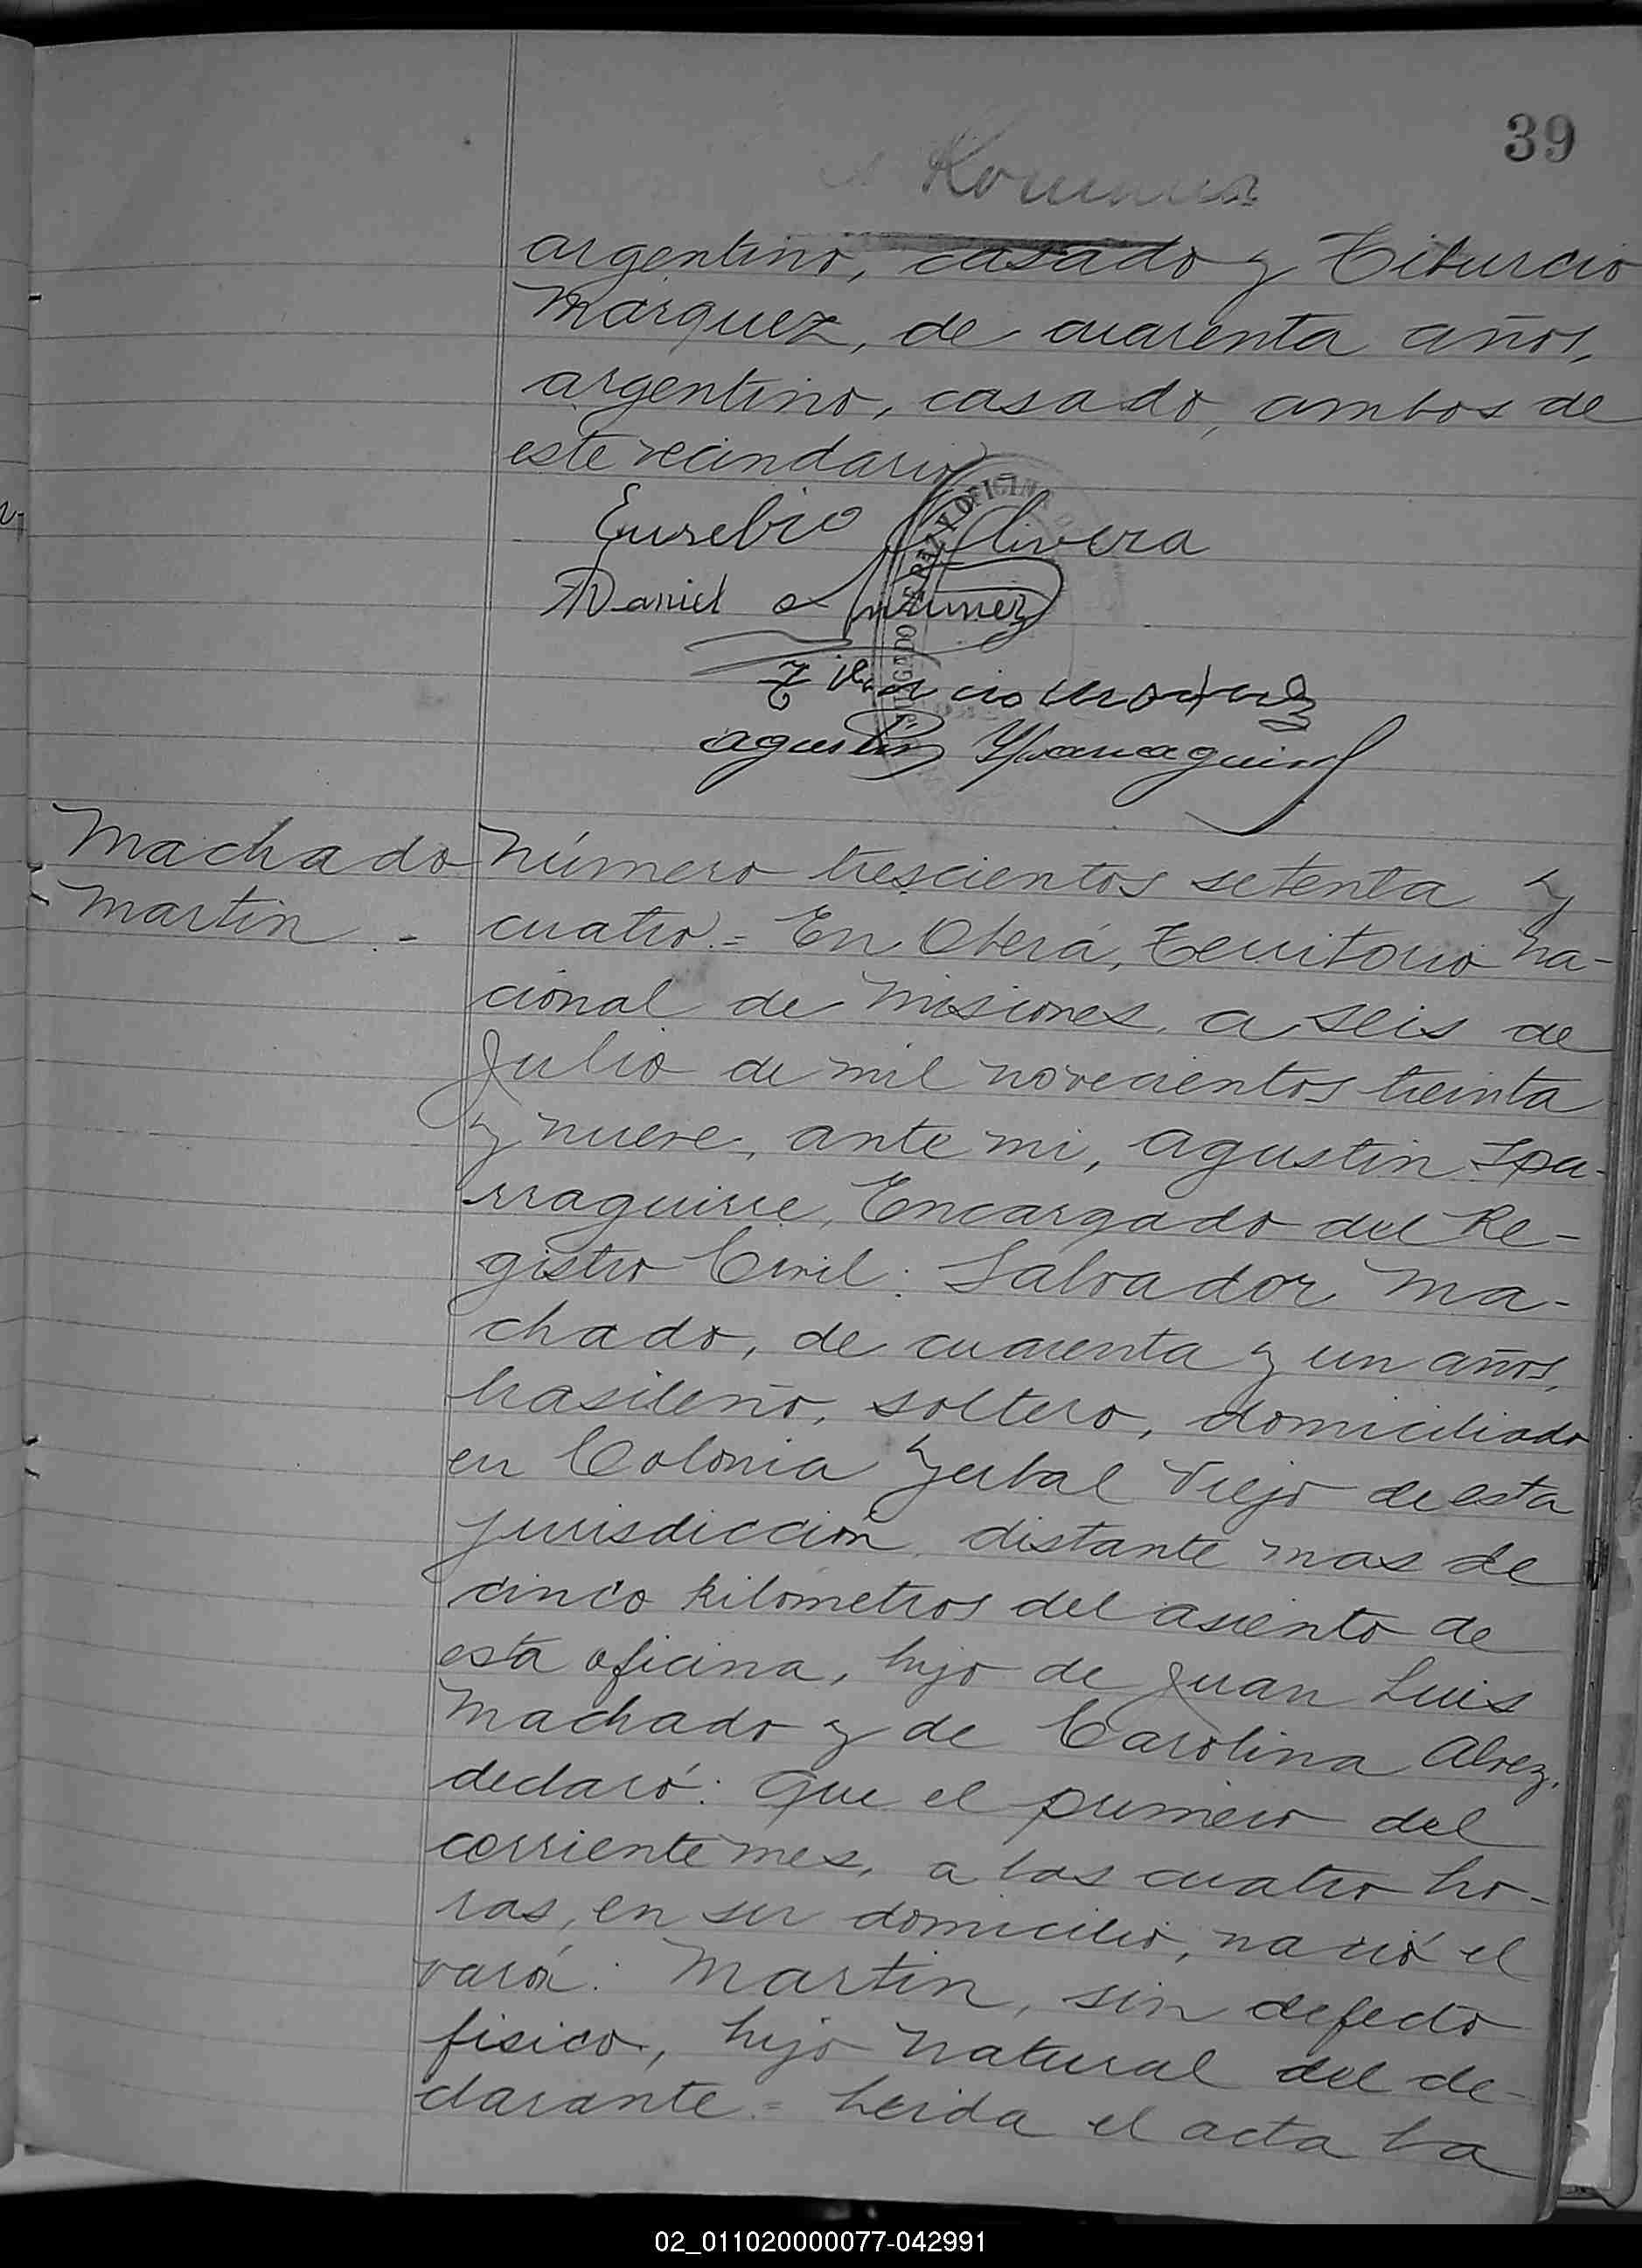 39
argentino, casado y Tiburcio
Marquez, de cuarenta años,
argentino, casado, ambos de
este vecindario
Eusebio Olivera
Daniel Nuñez
Agustin Yparraguirre
Machado
Martin.-
Número trescientos setenta y
cuatro.= En Oberá, Territorio Na-
cional de Misiones, a seis de
Julio de mil novecientos treinta
y nueve, ante mi, Agustin Ipa-
rraguirre, Encargado del Re-
gistro Civil: Salvador Ma-
chado, de cuarenta y un años,
brasileño, soltero, domiciliado
en Colonia Yerbal Viejo de esta
jurisdicción, distante mas de
cinco kilómetros del asiento de
esta oficina, hijo de Juan Luis
Machado y de Carolina Alvez,
declaró: Que el primero del
corriente mes, a las cuatro ho-
ras, en su domicilio, nació el
varón: Martin, sin defecto
fisico, hijo natural del de-
clarante.= Leida el acta la
02_011020000077-042991